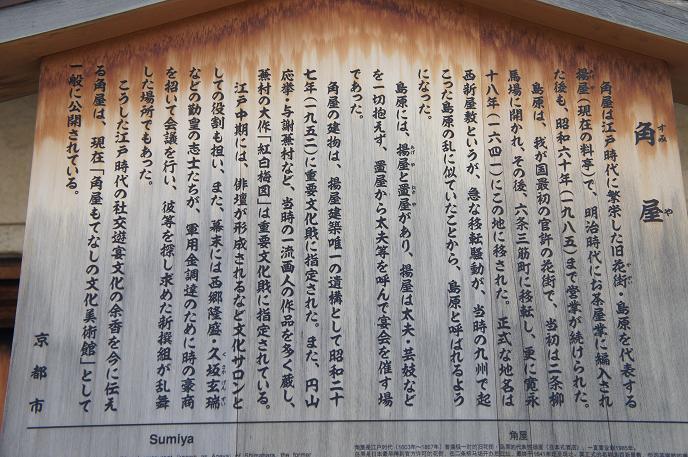 角屋
すみや
角屋は江戸時代に繁栄した旧花街・島原を代表する
揚屋(現在の料亭)で、明治時代にお茶屋業に編入され
た後も、昭和六十年(一九八五)まで営業が続けられた。
島原は、我が国最初の官許の花街で、当初は二条柳
馬場に開かれ、その後、六条三筋町に移転し、更に寛永
十八年(一六四一)にこの地に移された。正式な地名は
西新屋敷というが、急な移転騒動が、当時の九州で起
こった島原の乱に似ていたことから、島原と呼ばれるよう
になった。
島原には、揚屋と置屋があり、揚屋は太夫・芸妓など
を一切抱えず、置屋から太夫等を呼んで宴会を催す場
であった。
角屋の建物は、揚屋建築唯一の遺構として昭和二十
七年(一九五二)に重要文化財に指定された。また、円山
応挙・与謝蕪村など、当時の一流画人の作品を多く蔵し、
蕪村の大作「紅白梅図」は重要文化財に指定されている。
江戸中期には、俳壇が形成されるなど文化サロンと
しての役割も担い、また、幕末には西郷隆盛・久坂玄瑞
などの勤皇の志士たちが、軍用金調達のために時の豪商
を招いて会議を行い、彼等を探し求めた新撰組が乱舞
した場所でもあった。
こうした江戸時代の社交遊宴文化の余香を今に伝え
る角屋は、現在「角屋もてなしの文化美術館」として
一般に公開されている。
京都市
Sumiya
角屋